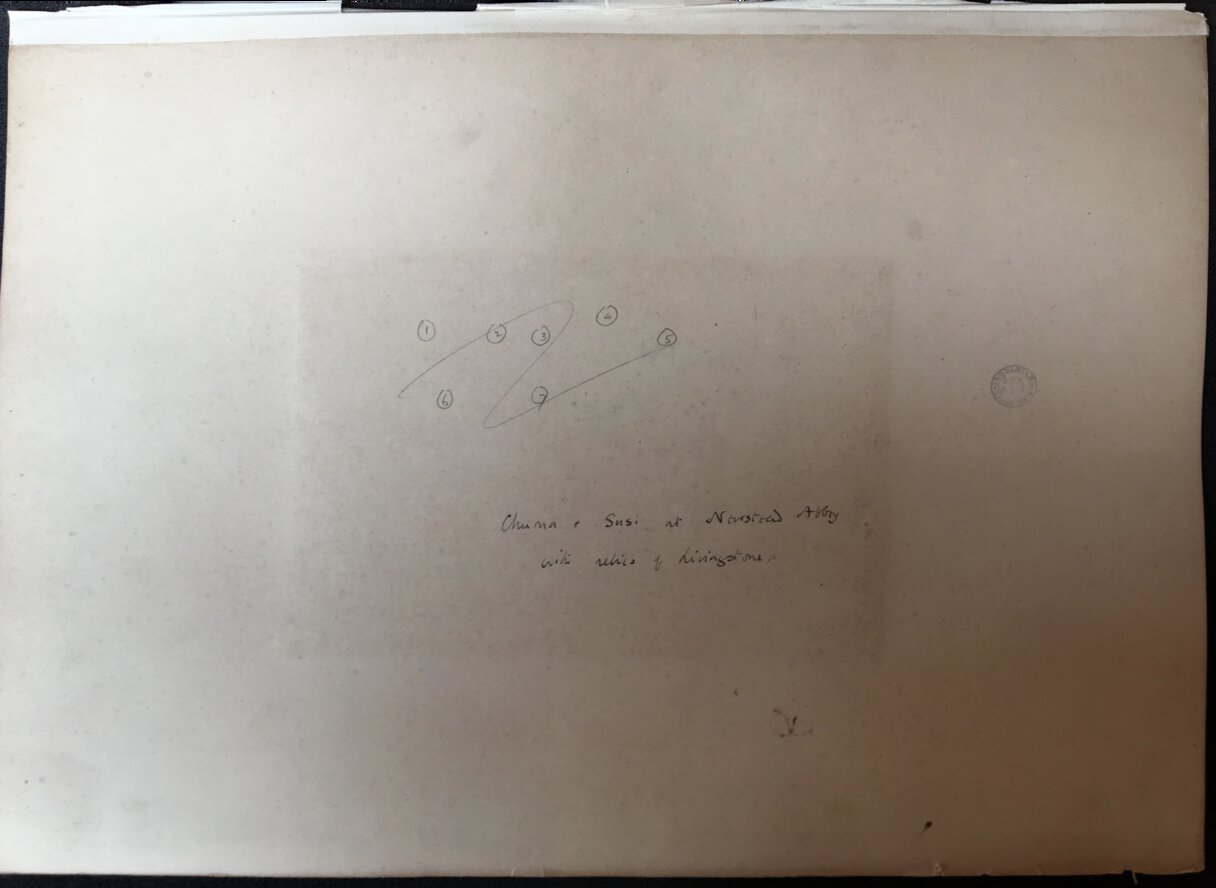 ① ② ③ ④ ⑤
⑥ ⑦
Chuma + Susi at Newstead Abbey
with relics of Livingstone.